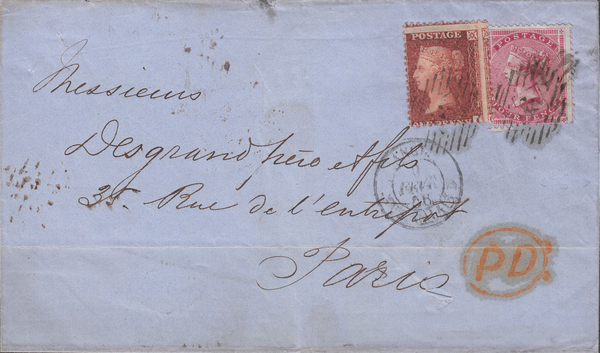 POSTAGE
POSTAGE
Messieurs
Desgrand père et fils
35 Rue de l'entrepot
Paris
PD